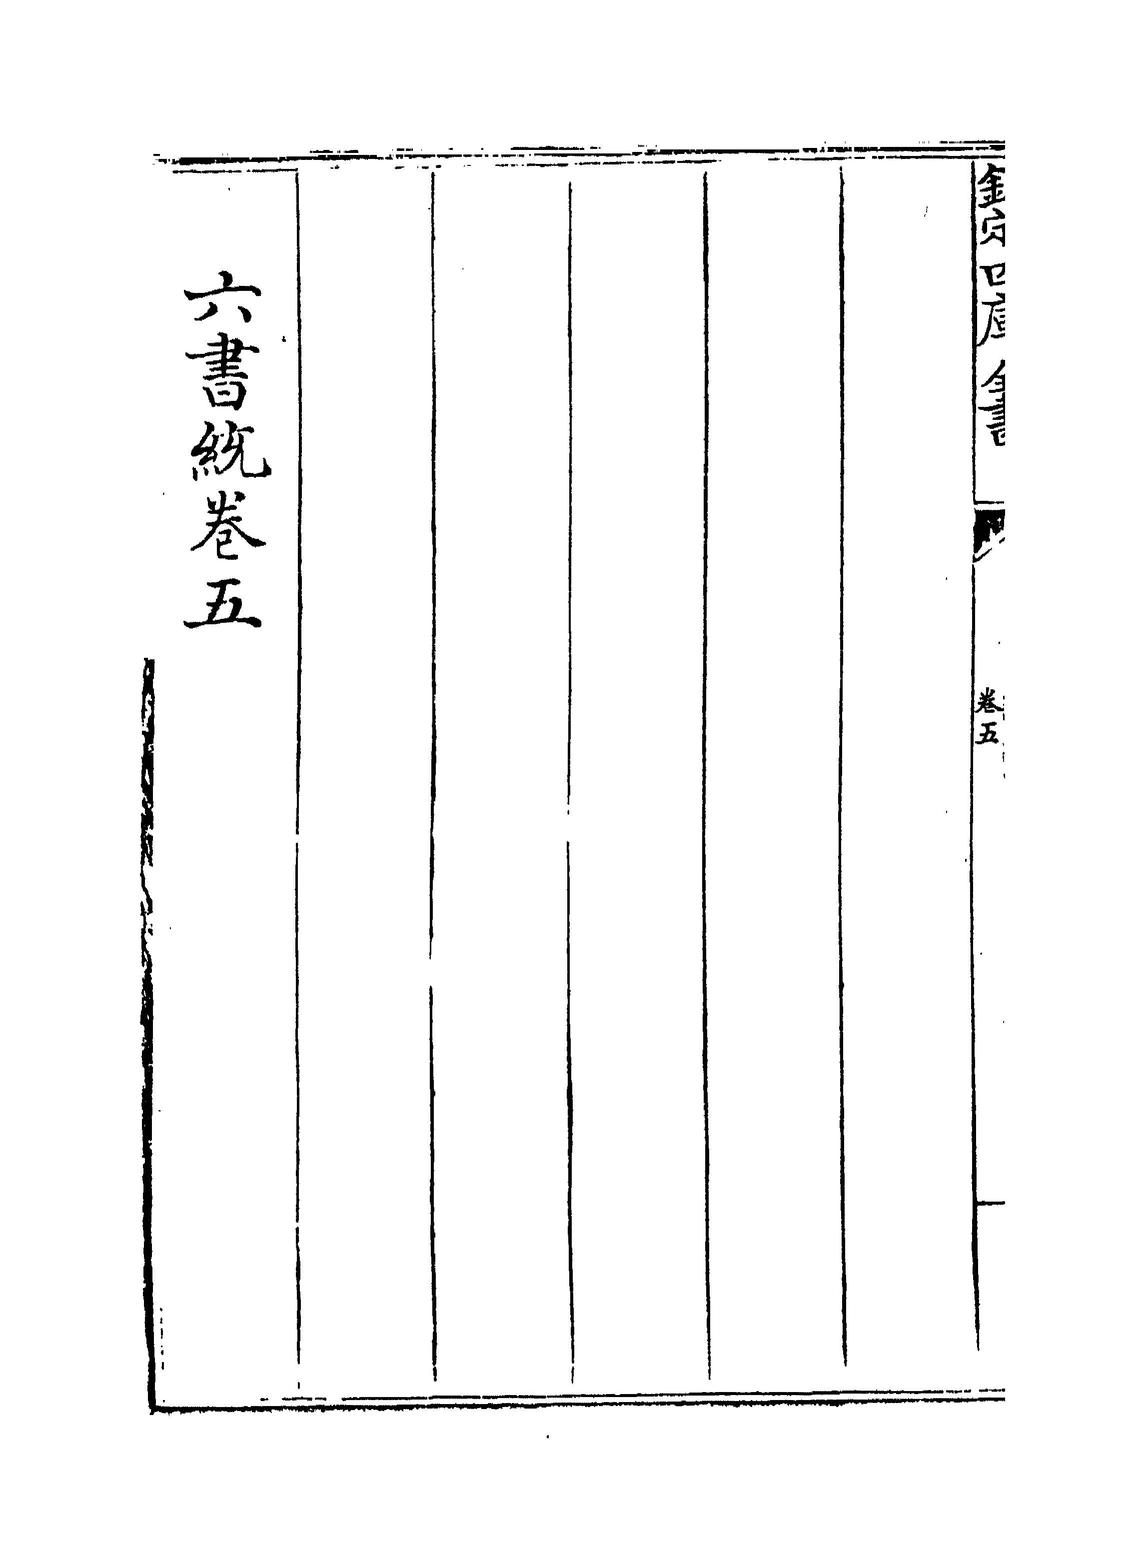 欽定四庫全書
卷五
六書統卷五